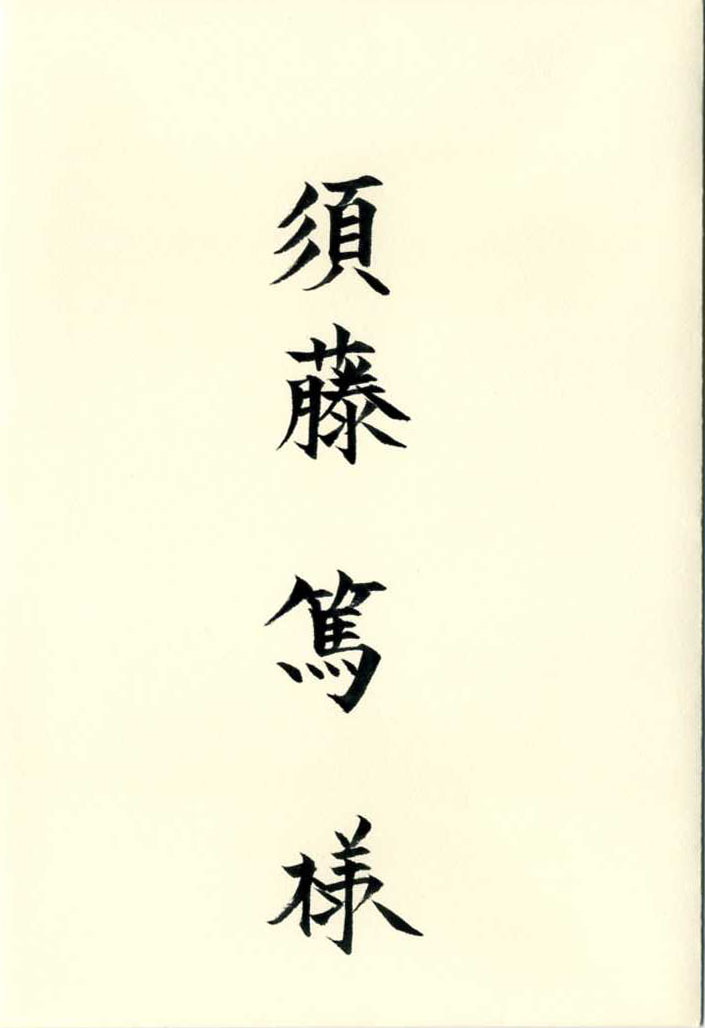 須藤篤様